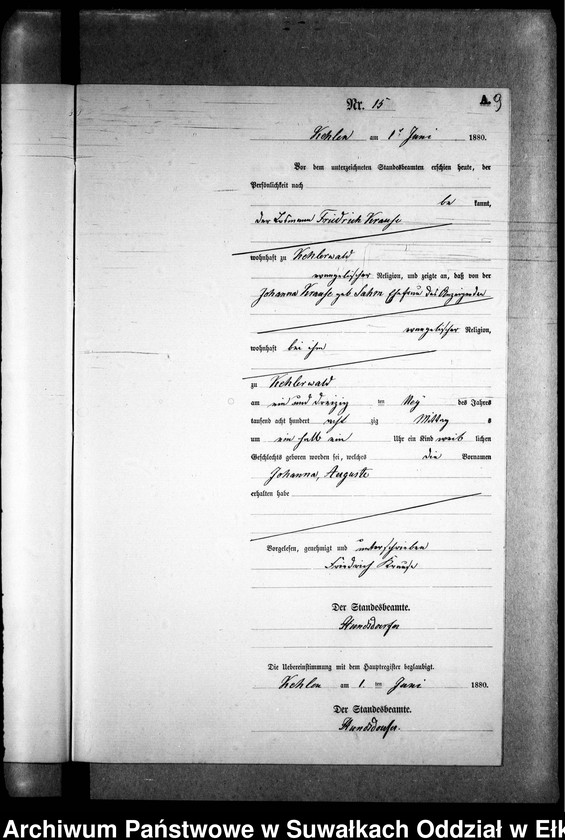 Nr. 15
A. 9
Kehlen am 1ᵗ Juni 1880.
Vor dem unterzeichneten Standesbeamten erschien heute, der
Persönlichkeit nach
be kannt,
der Losmann Friedrich Krause
wohnhaft zu Kehlerwald
evangelischer Religion, und zeigte an, daß von der
Johanna Krause geb Ehefrau des Anzeigenden
evangelischer Religion,
wohnhaft bei ihm
zu Kehlerwald
am ein und dreizig ten May des Jahres
tausend acht hundert acht zig Mittag s
um ein halb ein Uhr ein Kind weib lichen
Geschlechts geboren worden sei, welches die Vornamen
Johanna, Auguste
erhalten habe
Vorgelesen, genehmigt und unterschrieben
Friedrich Krause
Der Standesbeamte.
Die Uebereinstimmung mit dem Hauptregister beglaubigt.
Kehlen am 1. ten Juni 1880.
Der Standesbeamte.
Archiwum Państwowe w Suwałkach Oddział w Ełk